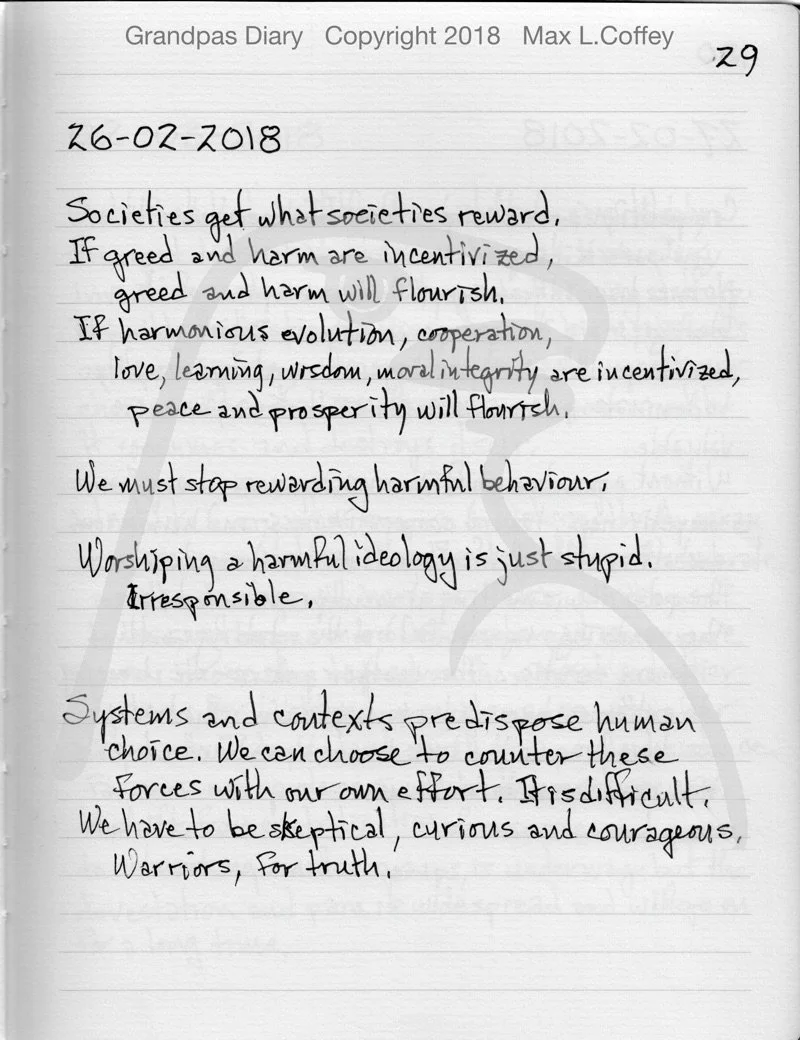 Grandpas Diary Copyright 2018 Max L.Coffey
29
26-02-2018
Societies get what societies reward.
If greed and harm are incentivized,
greed and harm will flourish.
If harmonious evolution, cooperation,
love, learning, wisdom, moral integrity are incentivized,
peace and prosperity will flourish.
We must stop rewarding harmful behaviour.
Worshiping a harmful ideology is just stupid.
Irresponsible.
Systems and contexts predispose human
choice. We can choose to counter these
forces with our own effort. It is difficult.
We have to be skeptical, curious and courageous.
Warriors, for truth.